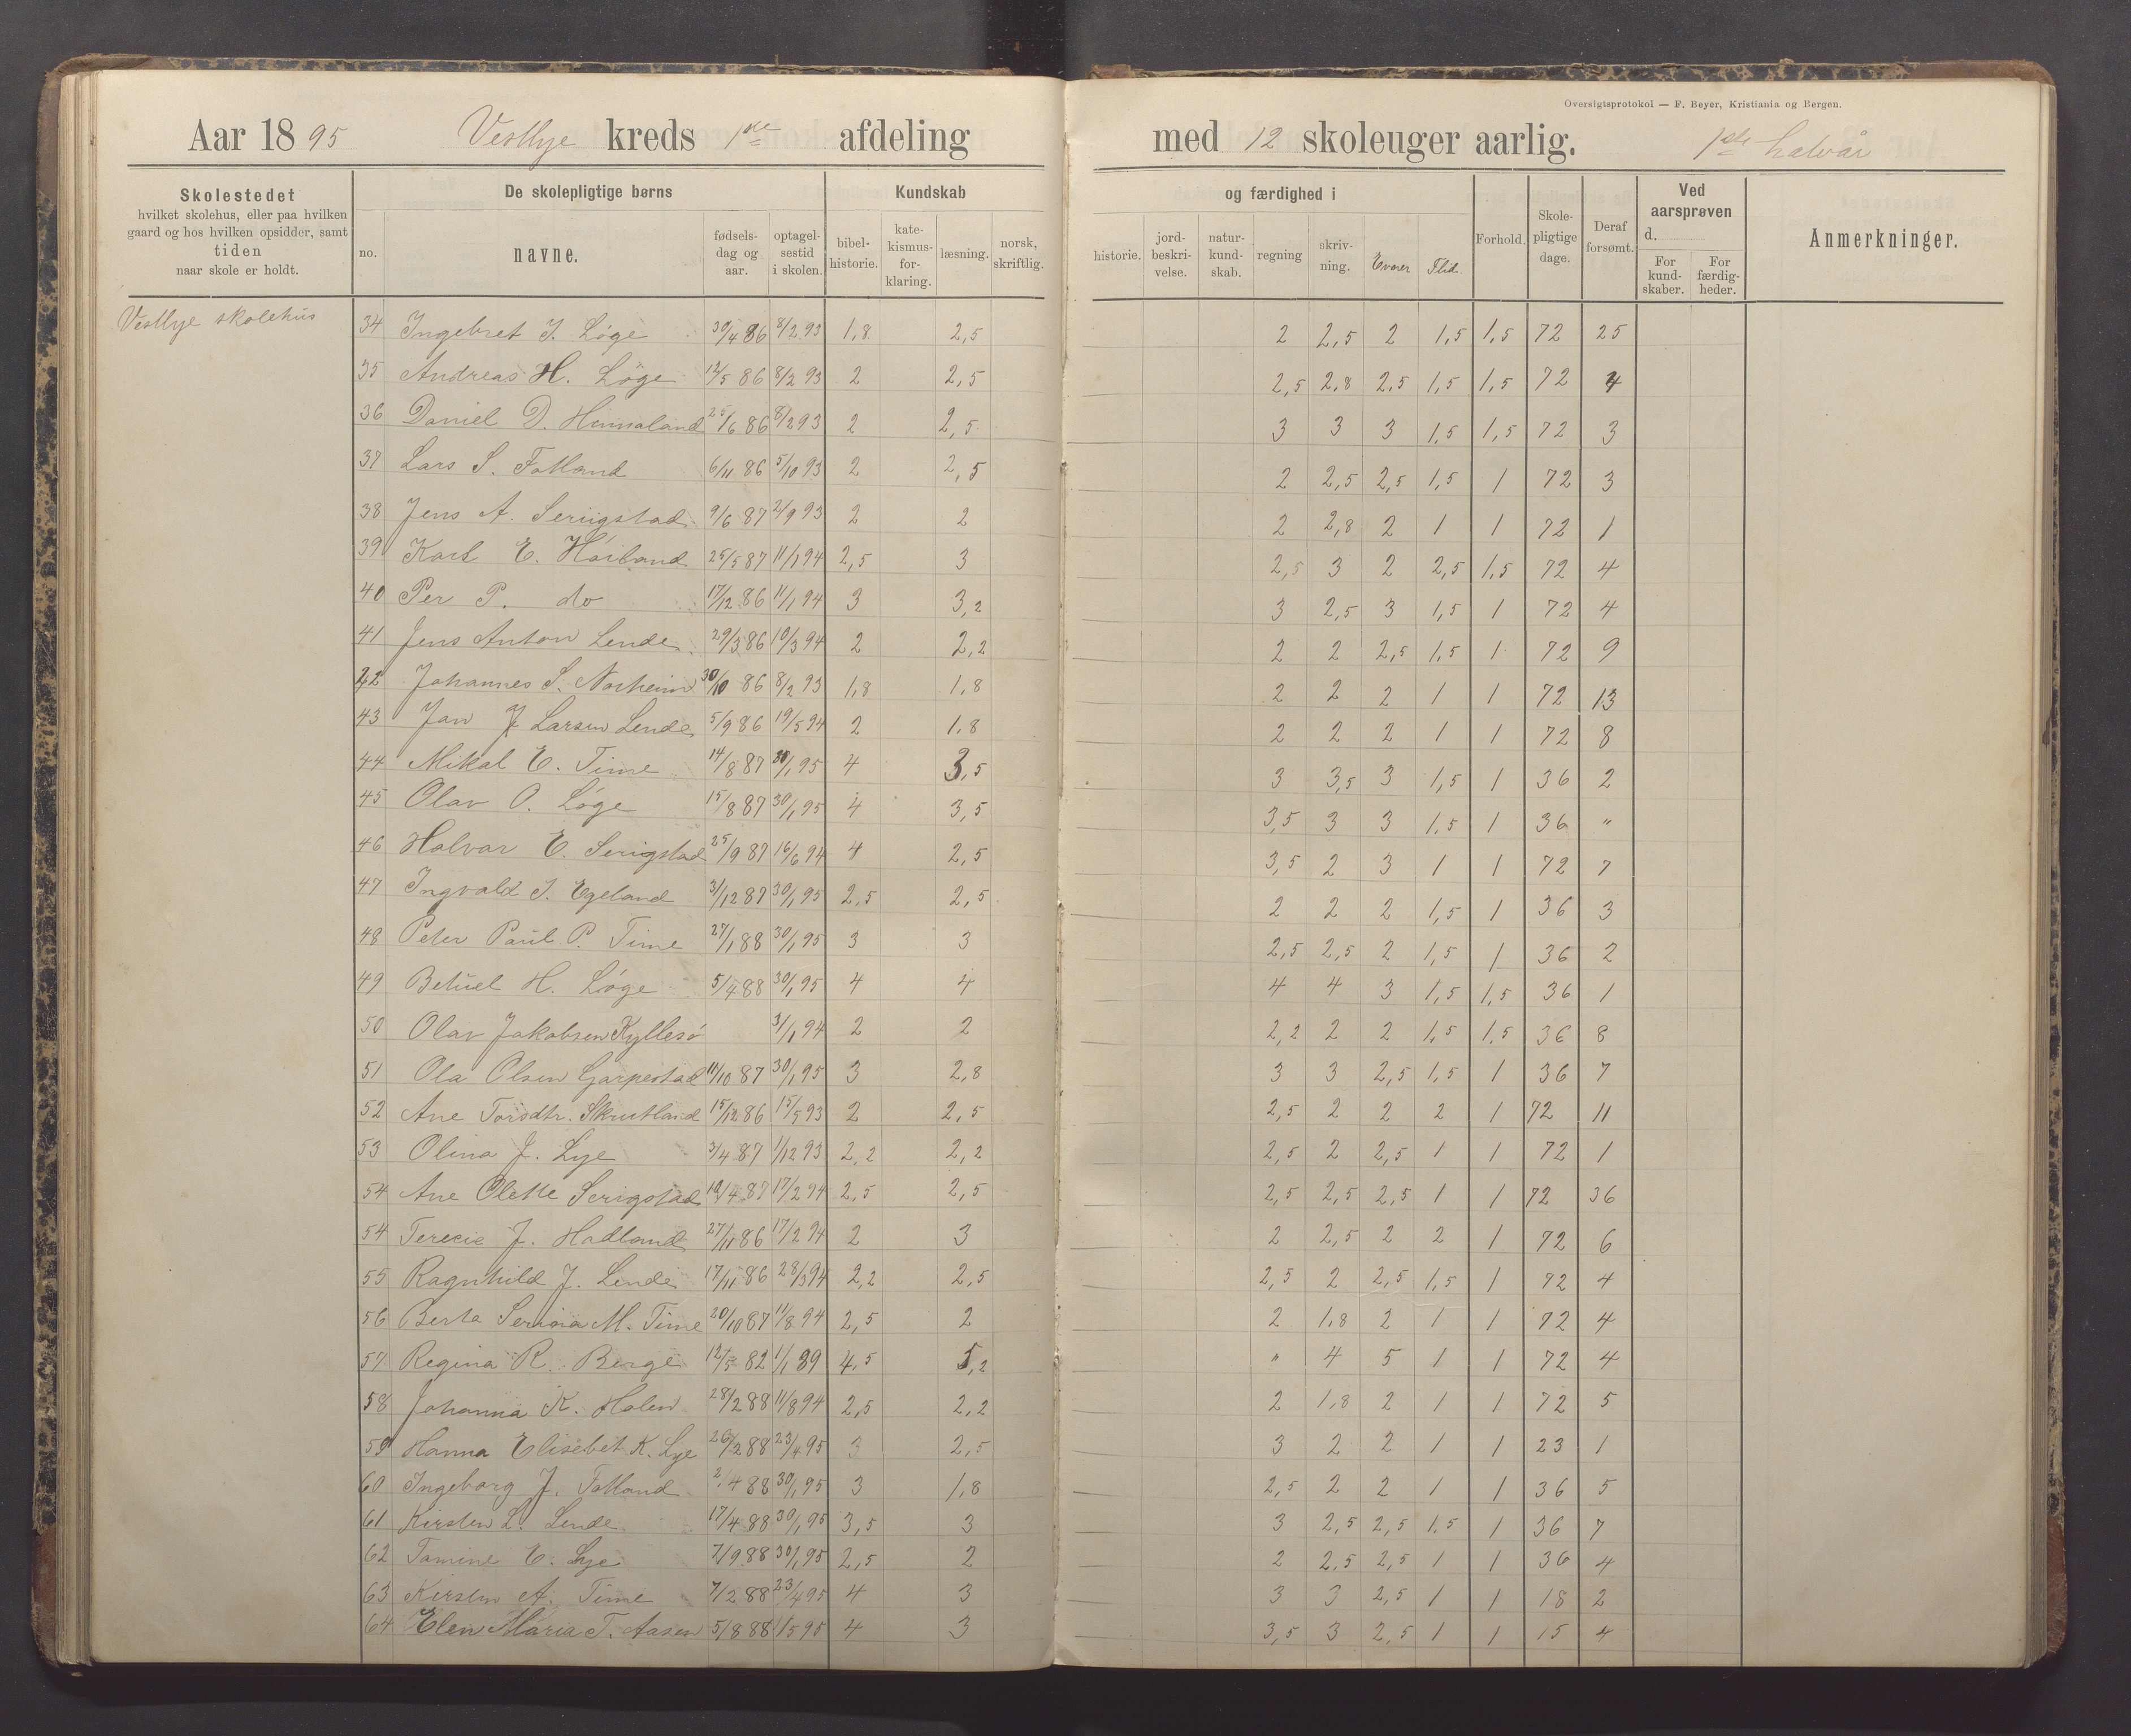 Oversigtsprotokol — F. Beyer, Kristiania og Bergen.
Aar 1895 Vestlye kreds 1ste afdeling med 12 skoleuger aarlig. 1ste halvår
Skolestedet hvilket skolehus, eller paa hvilken gaard og hos hvilken opsidder, samt tiden naar skole er holdt.
De skolepligtige børns
no. navne. fødselsdag og aar. optagelsestid i skolen.
Kundskab og færdighed i
bibelhistorie. katekismusforklaring. læsning. norsk, skriftlig. historie. jordbeskrivelse. naturkundskab. regning skrivning. Evner Flid.
Forhold. Skolepligtige dage. Deraf forsømt. Ved aarsprøven d. For kundskaber. For færdigheder. Anmerkninger.
Vestlye skolehus
34 Ingebret I. Løge 30/4 86 8/2 93 1,8 2,5 2 2,5 2 1,5 1,5 72 25
35 Andreas H. Løge 12/5 86 8/2 93 2 2,5 2,5 2,8 2,5 1,5 1,5 72 4
36 Daniel D. 25/6 86 8/2 93 2 2,5 3 3 3 1,5 1,5 72 3
37 Lars S. Fotland 6/11 86 5/10 93 2 2,5 2 2,5 2,5 1,5 1 72 3
38 Jens A. Serigstad 9/6 87 2/9 93 2 2 2 2,8 2 1 1 72 1
39 Karl E. Høiland 25/5 87 11/1 94 2,5 3 2,5 3 2 2,5 1,5 72 4
40 Per P. do 17/12 86 11/1 94 3 3,2 3 2,5 3 1,5 1 72 4
41 Jens Anton Lende 29/3 86 10/3 94 2 2,2 2 2 2,5 1,5 1 72 9
42 Johannes S. Norheim 30/10 86 8/2 93 1,8 1,8 2 2 2 1 1 72 13
43 Jan J Larsen Lende 5/9 86 19/5 94 2 1,8 2 2 2 1 1 72 8
44 Mikal E. Time 14/8 87 30/1 95 4 3,5 3 3,5 3 1,5 1 36 2
45 Olav O. Løge 15/8 87 30/1 95 4 3,5 3,5 3 3 1,5 1 36 "
46 Halvar E. Serigstad 25/9 87 16/6 94 4 2,5 3,5 2 3 1 1 72 7
47 Ingvald I. Egeland 3/12 87 30/1 95 2,5 2,5 2 2 2 1,5 1 36 3
48 Peter Paul P. Time 27/1 88 30/1 95 3 3 2,5 2,5 2 1,5 1 36 2
49 Betuel H. Løge 5/4 88 30/1 95 4 4 4 4 3 1,5 1,5 36 1
50 Olav Jakobsen Kyllesø 3/1 94 2 2 2,2 2 2 1,5 1,5 36 8
51 Ola Olsen Garpestad 11/10 87 30/1 95 3 2,8 3 3 2,5 1,5 1 36 7
52 Ane Torsdtr. Skrutland 15/12 86 15/5 93 2 2,5 2,5 2 2 2 1 72 11
53 Olina J. Lye 3/4 87 1/12 93 2,2 2,2 2,5 2 2,5 1 1 72 1
54 Ane Olette Serigstad 10/4 87 17/2 94 2,5 2,5 2,5 2,5 2,5 1 1 72 36
54 Terecie J. Hadland 27/11 86 17/2 94 2 3 2 2,5 2 2 1 72 6
55 Ragnhild J. Lende 17/11 86 28/3 94 2,2 2,5 2,5 2 2,5 1,5 1 72 4
56 Berta Serina M. Time 20/10 87 11/8 94 2,5 2 2 1,8 2 1 1 72 4
57 Regina R. Berge 12/5 82 1/1 89 4,5 5,2 " 4 5 1 1 72 4
58 Johanna K. Holen 28/2 88 11/8 94 2,5 2,2 2 1,8 2 1 1 72 5
59 Hanna Elisebet K. Lye 26/2 88 23/4 95 3 2,5 3 2 2 1 1 23 1
60 Ingeborg J. Fotland 2/4 88 30/1 95 3 1,8 2,5 2 2 1 1 36 5
61 Kirsten L. Lende 17/4 88 30/1 95 3,5 3 3 2,5 2,5 1,5 1 36 7
62 Tomine E. Lye 7/9 88 30/1 95 2,5 2 2 2,5 2,5 1 1 36 4
63 Kirsten A. Time 7/2 88 23/4 95 4 3 3 3 2,5 1 1 18 2
64 Elen Maria T. Aasen 5/8 88 1/5 95 4 3 3,5 3 2,5 1 1 15 4